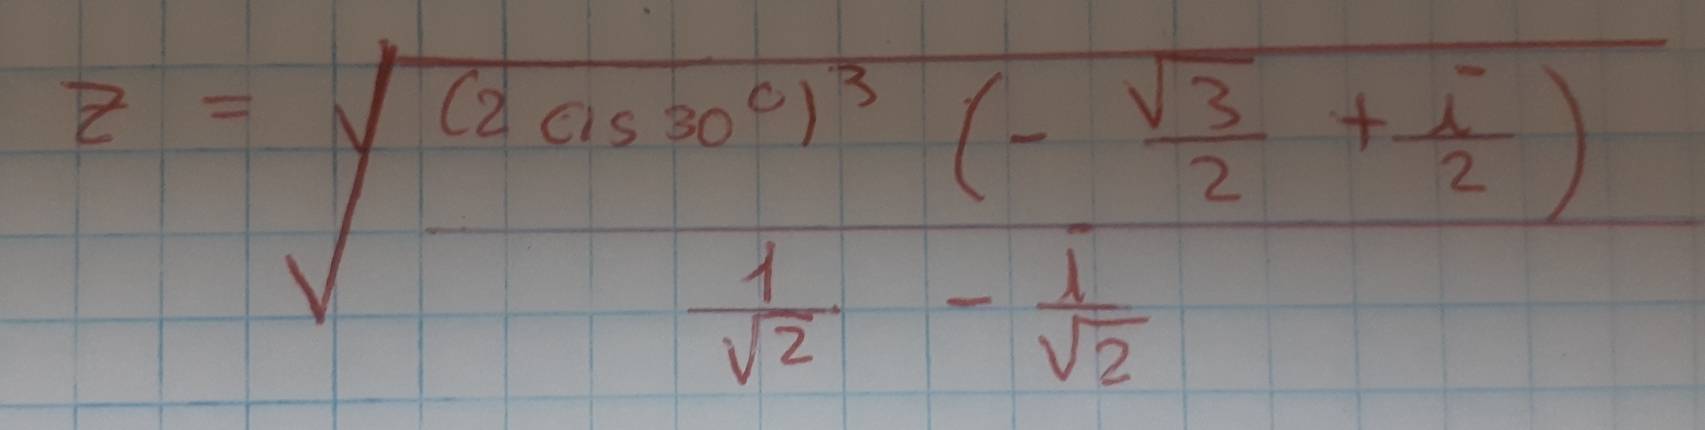 z = √ (2 cis 30°)³ (- √3/2 + i/2)
1/√2 - i/√2